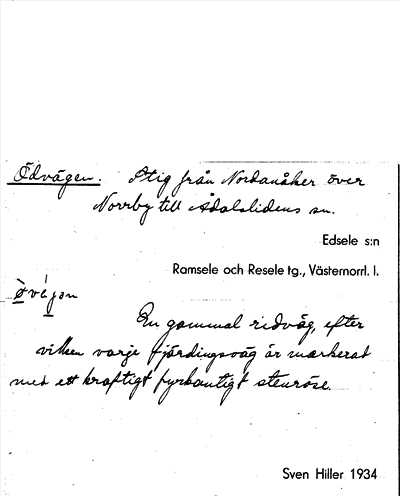 Ödvägen. Stig från Nordanåker över
Norrby till Ådalslidens sn.
Edsele s:n
Ramsele och Resele tg., Västernorrl. l.
En gammal ridväg, efter
vilken varje fjärdingsväg är markerat
med ett kraftigt fyrkantigt stenröse.
Sven Hiller 1934